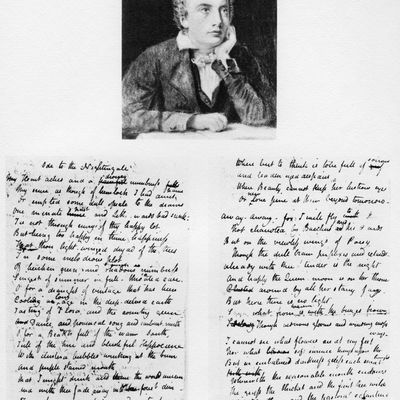 Ode to the Nightingale
My Heart aches and a drowsy numbness
My sense as though of hemlock I had drunk
Or emptied some dull opiate to the drains
One minute and Lethe-wards had sunk
Tis not through envy of thy happy lot
But being too happy in thine happiness
That thou light-winged dryad of the trees
In some melodious plot
Of beechen green and shadows numberless
Singest of summer in full-throated ease
O for a draught of vintage that has been
Cooling an age in the deep-delved earth
Tasting of Flora, and the country green
And Dance, and provençal song and sunburnt mirth
O for a Beaker full of the warm South,
Full of the true and blushful Hippocrene
With cluster'd bubbles winking at the brim
And purple stained mouth
That I might drink and leave the world unseen
And with thee fade away into the forest dim
Where but to think is to be full of sorrow
and leaden-eyed despairs
Where Beauty cannot keep her lustrous eyes
Or new love pine at them beyond tomorrow.
Away-away-for I will fly to thee
Not charioted by Bacchus and his Pards
But on the viewless wings of Poesy
Though the dull brain perplexes and retards
Already with thee! tender is the night
And haply the Queen moon is on her throne
Cluster'd around by all her starry fays
But here there is no light
Save what from heaven is with the breezes blown
Through verdurous glooms and winding mossy ways.
I cannot see what flowers are at my feet
Nor what soft incense hangs upon the
But in embalmed darkness guess each sweet
Wherewith the seasonable month endows
The grass the thicket and the fruit tree wild